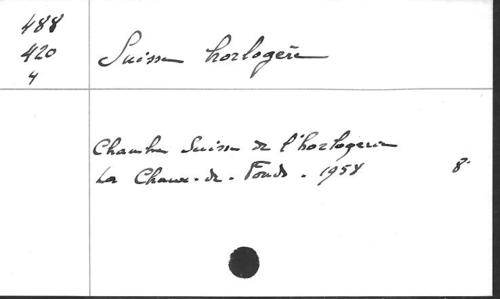 488
420
4
Suisse horlogère
Chambre Suisse de l'horlogerie
La Chaux-de-Fonds. 1958 8°